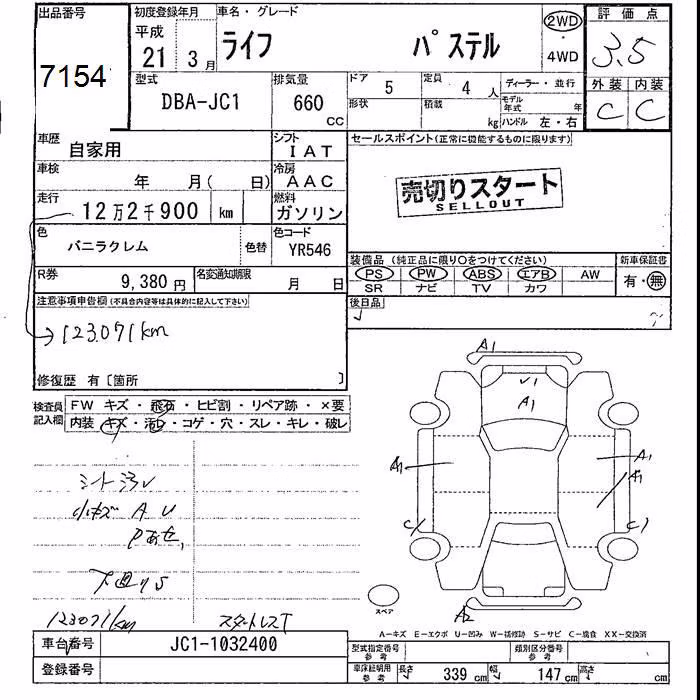 出品番号 初度登録年月 車名・グレード 評価点
7154 平成 21年 3月 ライフ パステル 2WD・4WD 3.5
型式 排気量 ドア 5 定員 4人 ディーラー・並行 外装 内装
DBA-JC1 660cc 形状 積載 kg モデル年式 年 C C
ハンドル 左・右
車歴 自家用 シフト IAT セールスポイント(正常に機能するものに限ります)
車検 年 月( 日) 冷房 AAC
売切りスタート
SELLOUT
走行 12万2千900 km 燃料 ガソリン
色 バニラクレム 色替 色コード YR546
装備品(純正品に限り○をつけてください) 新車保証書
R券 9,380円 名変通知期限 月 日 PS PW ABS エアB AW 有・無
SR ナビ TV カワ
注意事項申告欄(不具合内容等は具体的に記入して下さい) 後日品
123.071km
修復歴 有〔箇所 〕
検査員記入欄 FW キズ・飛石・ヒビ割・リペア跡・×要
内装 キズ・汚レ・コゲ・穴・スレ・キレ・破レ
A1
A1
A1 A1
A1
シート汚レ
小キズ A U
下廻りS
スペア
A2
123071km スタットレスT
A-キズ E-エクボ U-凹み W-補修跡 S-サビ C-腐食 XX-交換済
車台番号 JC1-1032400 型式指定番号 参考 類別区分番号 参考
登録番号 車庫証明用 参考 長さ 339cm 幅 147cm 高さ cm